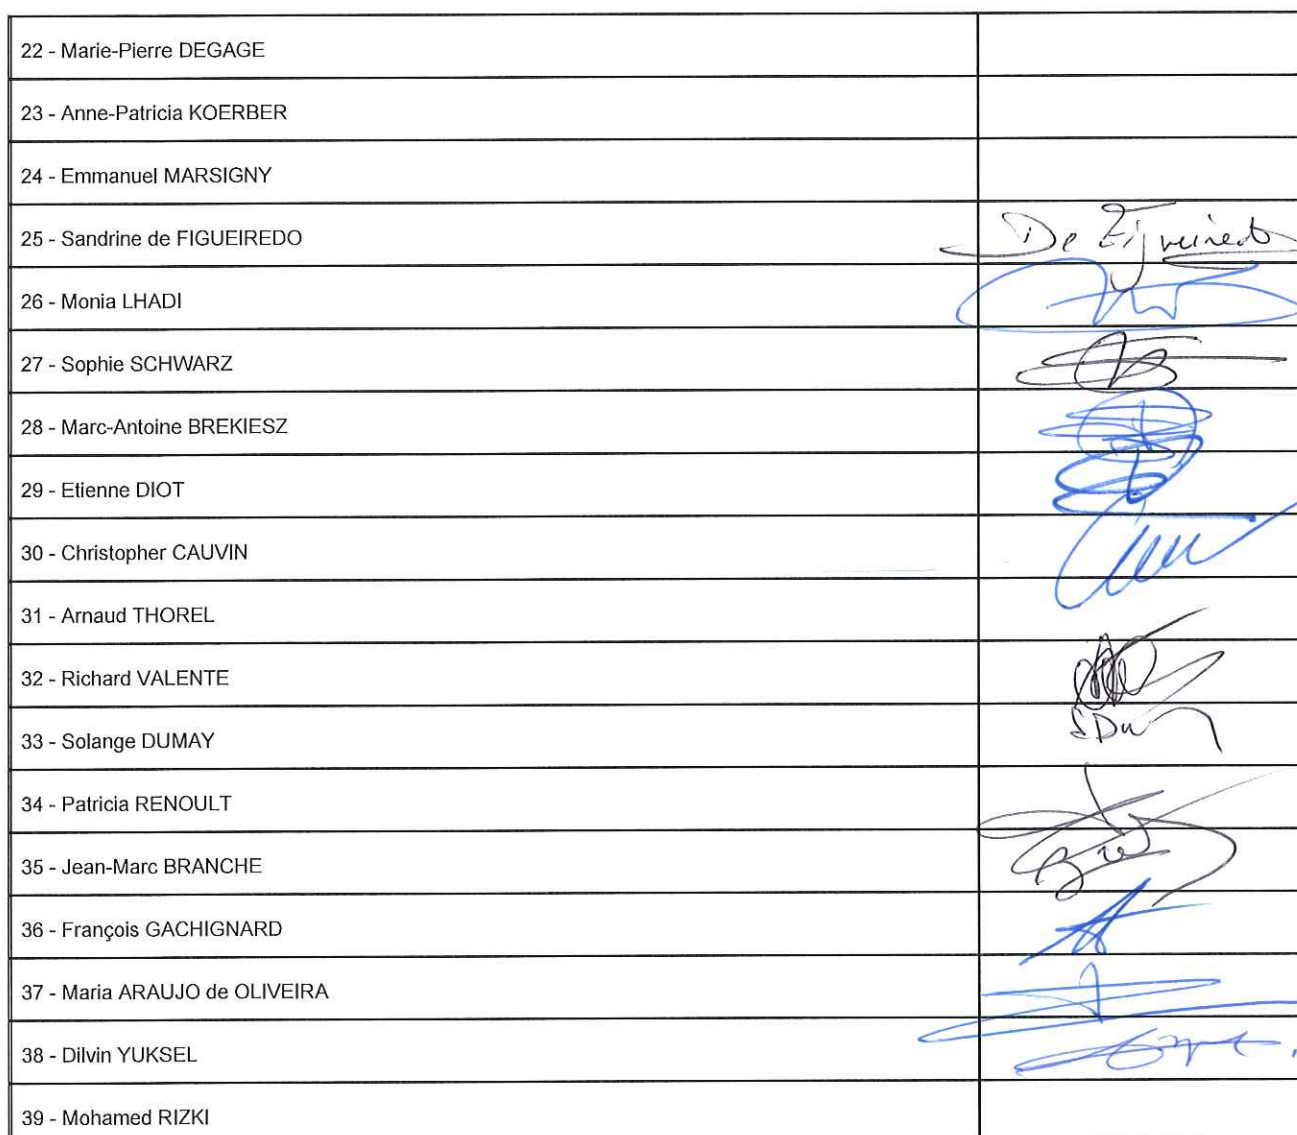 22 - Marie-Pierre DEGAGE
23 - Anne-Patricia KOERBER
24 - Emmanuel MARSIGNY
25 - Sandrine de FIGUEIREDO
De Figueiredo
26 - Monia LHADI
27 - Sophie SCHWARZ
28 - Marc-Antoine BREKIESZ
29 - Etienne DIOT
30 - Christopher CAUVIN
31 - Arnaud THOREL
32 - Richard VALENTE
33 - Solange DUMAY
34 - Patricia RENOULT
35 - Jean-Marc BRANCHE
36 - François GACHIGNARD
37 - Maria ARAUJO de OLIVEIRA
38 - Dilvin YUKSEL
39 - Mohamed RIZKI